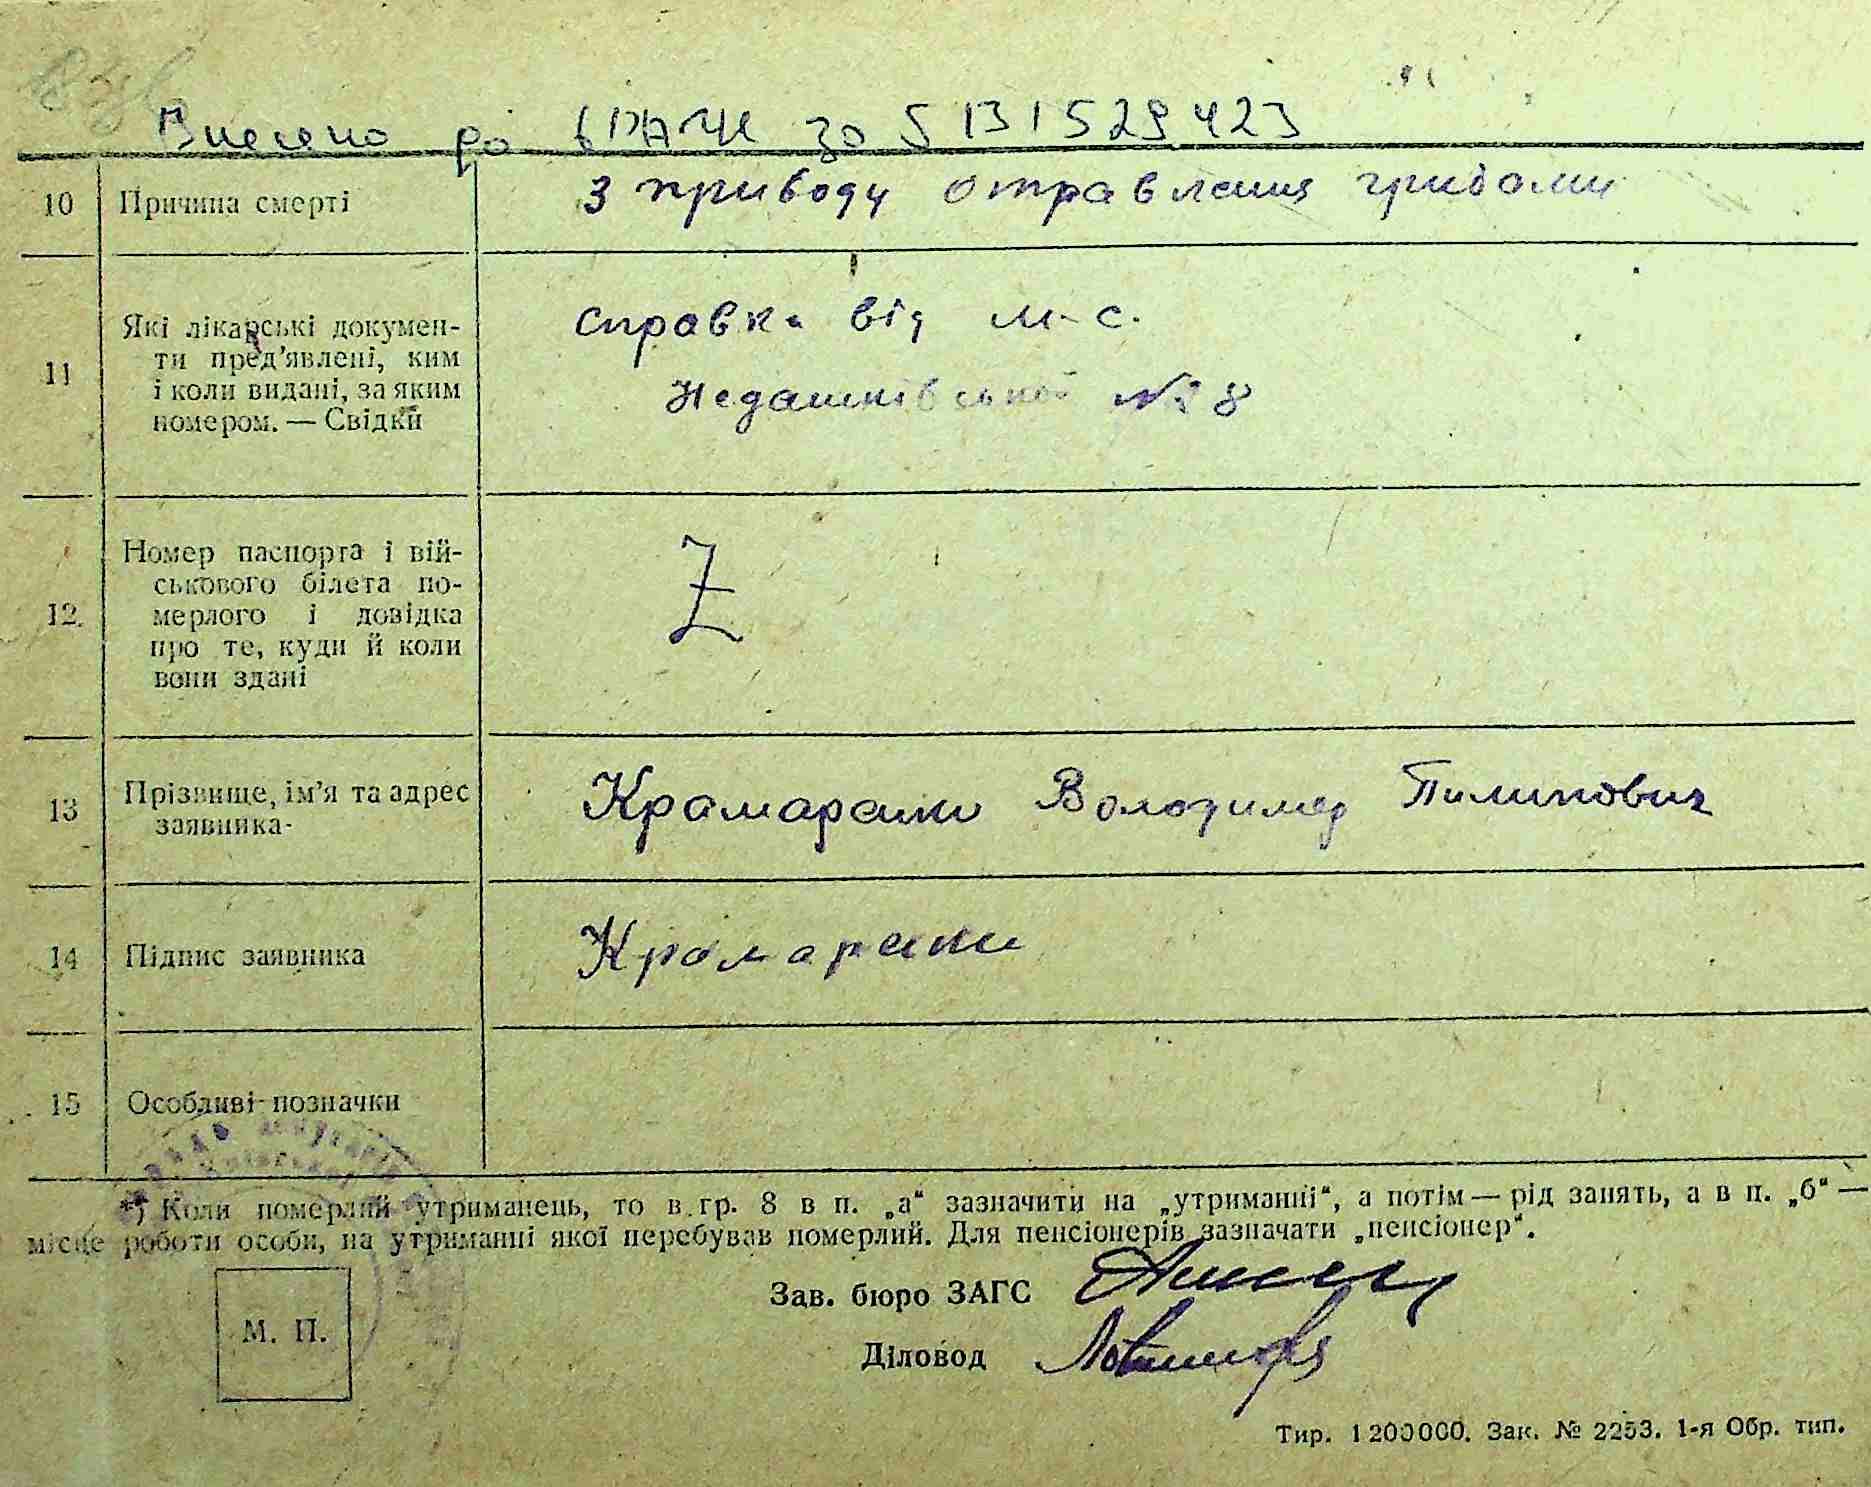 Внесено до за 5131529423
10 Причина смерті З приводу отравлення грибами
11 Які лікарські докумен-
ти пред'явлені, ким
і коли видані, за яким
номером. — Свідки
справка від м-с.
Недашківської № 38
12. Номер паспорта і вій-
ськового білета по-
мерлого і довідка
про те, куди й коли
вони здані
Z
13 Прізвище, ім'я та адрес
заявника-
Крамаренко Володимер Пилипович
14 Підпис заявника Крамаренко
15 Особливі позначки
*) Коли померлий утриманець, то в гр. 8 в п. „а“ зазначити на „утриманні“, а потім — рід занять, а в п. „б“ —
місце роботи особи, на утриманні якої перебував померлий. Для пенсіонерів зазначати „пенсіонер“.
Зав. бюро ЗАГС
М. П.
Діловод
Тир. 1200000. Зак. № 2253. 1-я Обр. тип.